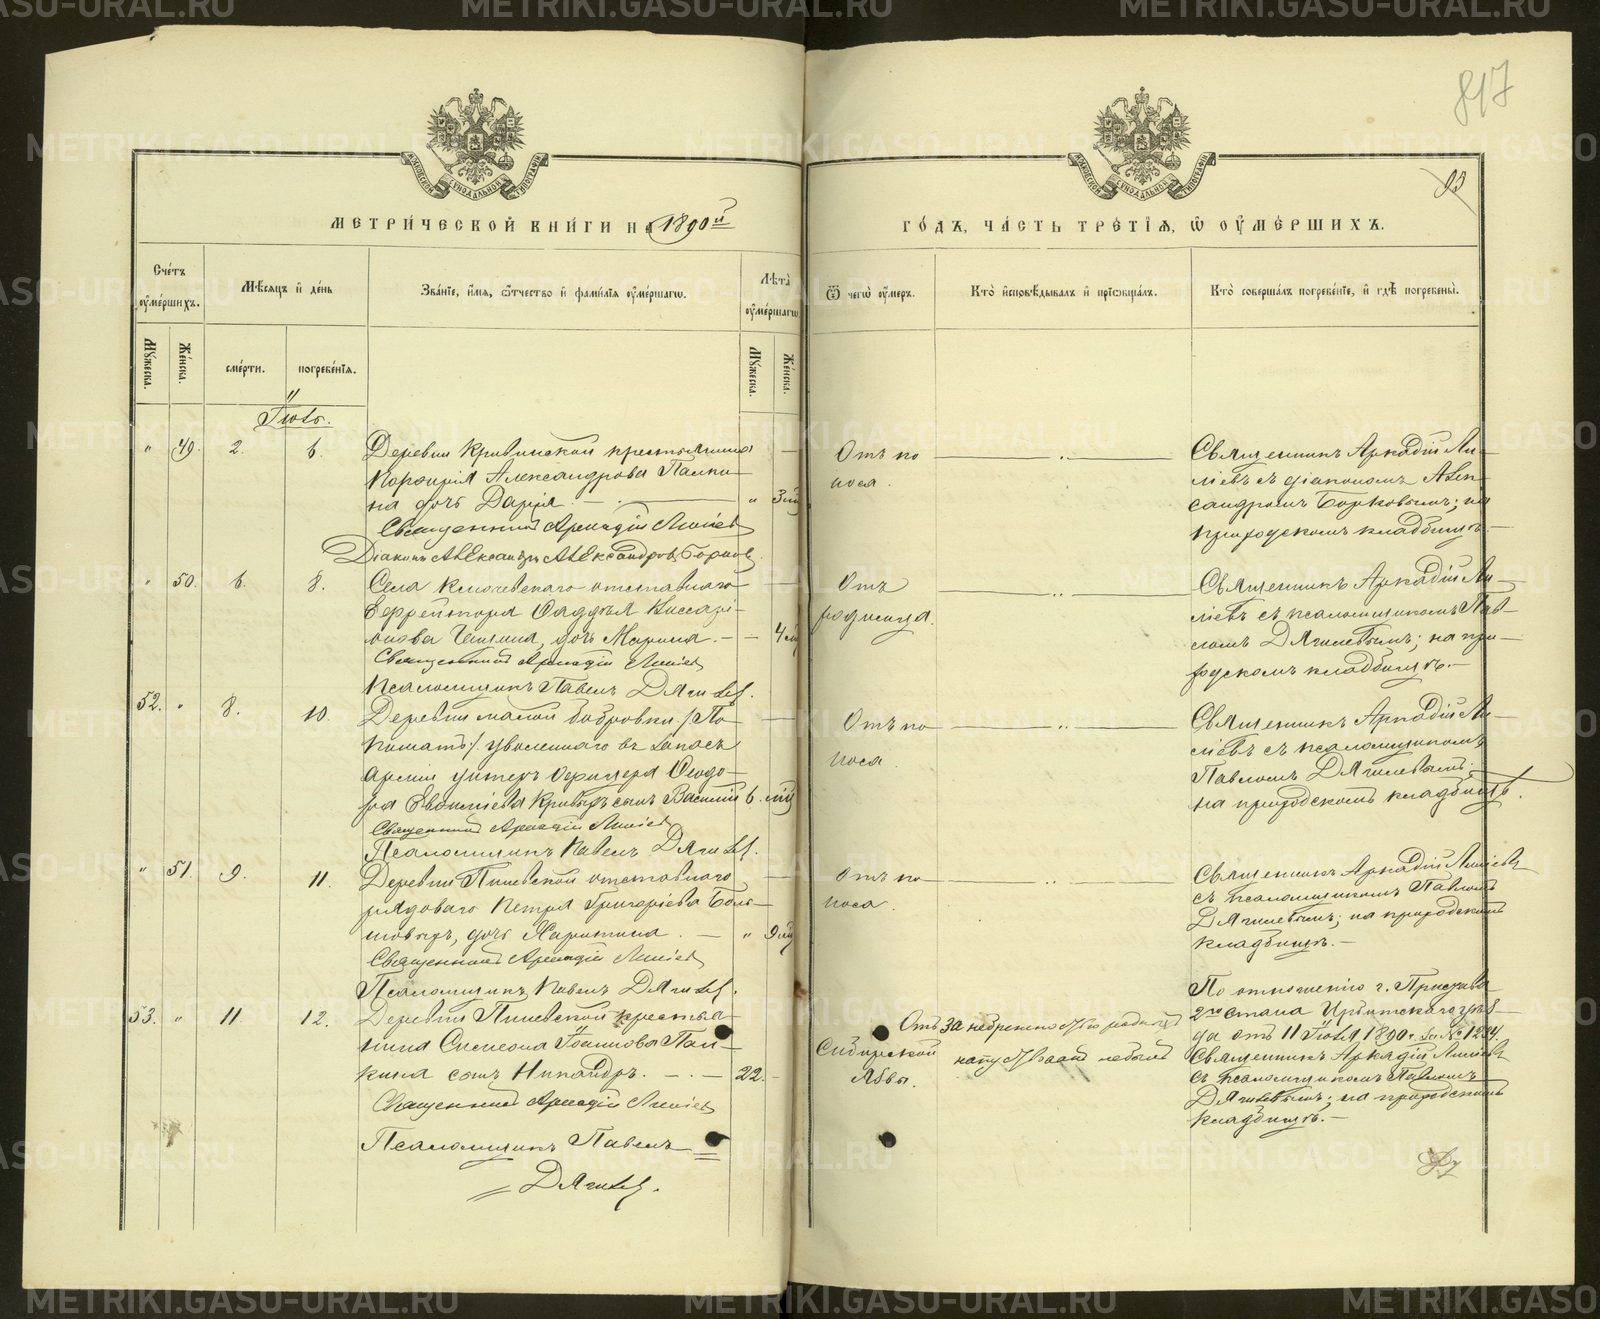 817
93
МЕТРИ́ЧЕСКОЙ КНИ́ГИ НА 1890й
ГО́ДЪ, ЧА́СТЬ ТРЕ́ТІЯ, Ѿ ОУ҆МЕ́РШИХЪ.
Сче́тъ оу҆ме́ршихъ.
Мѣ́сяцъ и҆ де́нь
Зва́нїе, и҆́мя, ѻ҆́тчество и҆ фами́лїя оу҆ме́ршагѡ.
Лѣта̀ оу҆ме́ршагѡ
Ѿ чегѡ̀ оу҆́меръ.
Кто̀ и҆сповѣ́дывалъ и҆ прїѡбща́лъ.
Кто̀ соверша́лъ погребе́нїе, и҆ гдѣ̀ погребены̀.
Мꙋ́жеска.
Же́нска.
сме́рти.
погребе́нїя.
Мꙋ́жеска.
Же́нска.
Іюль.
" 49. 2. 6. Деревни Кривинской крестьянина
Порфирія Александрова Палки-
на дочь Дарія. " 3
Священникъ Аркадій Ляпіевъ
Діаконъ Александръ Александровъ Борковъ
Отъ по
носа.
Священникъ Аркадій Ля-
піевъ съ діакономъ Алек-
сандромъ Борковымъ; на
приходскомъ кладбищѣ.
" 50. 6. 8. Села Ключевскаго отставнаго
Ефрейтора Фаддѣя Киссарі-
онова дочь Марина. 4
Священникъ Аркадій Ляпіевъ
Псаломщикъ Павелъ Дягилев.
Отъ
родимца.
Священникъ Аркадій Ля-
піевъ съ псаломщикомъ Пав-
ломъ Дягилевымъ; на при-
ходскомъ кладбищѣ.
52. " 8. 10. Деревни малой Бобровки /По-
уволеннаго въ запасъ
арміи унтеръ офицера Ѳеодо-
ра Евѳиміева сынъ Василій 6
Священникъ Аркадій Ляпіевъ
Псаломщикъ Павелъ Дягилев.
Отъ по
носа.
Священникъ Аркадій Ля-
піевъ съ псаломщикомъ
Павломъ Дягилевымъ;
на приходскомъ кладбищѣ.
" 51. 9. 11. Деревни Пиневской отставнаго
рядоваго Петра Григоріева Боль-
шовыхъ, дочь Харитина. " 9
Священникъ Аркадій Ляпіевъ
Псаломщикъ Павелъ Дягилев.
Отъ по
носа.
Священникъ Аркадій Ляпіевъ
съ псаломщикомъ Павломъ
Дягилевымъ; на приходскомъ
кладбищѣ.
53. " 11 12. Деревни Пиневской крестья-
нина Симеона Іоаннова Пал-
кина сынъ Никандръ. 22.
Священникъ Аркадій Ляпіевъ
Псаломщикъ Павелъ
Дягилев.
Отъ
Сибирской
Язвы.
за небрежностью родныхъ
напутствованъ не былъ
По отношенію г. Пристава
2го стана Ирбитскаго уѣз-
да отъ 11 Іюля 1890 г. за №
Священникъ Аркадій Ляпіевъ
съ псаломщикомъ Павломъ
Дягилевымъ; на приходскомъ
кладбищѣ.
METRIKI.GASO-URAL.RU